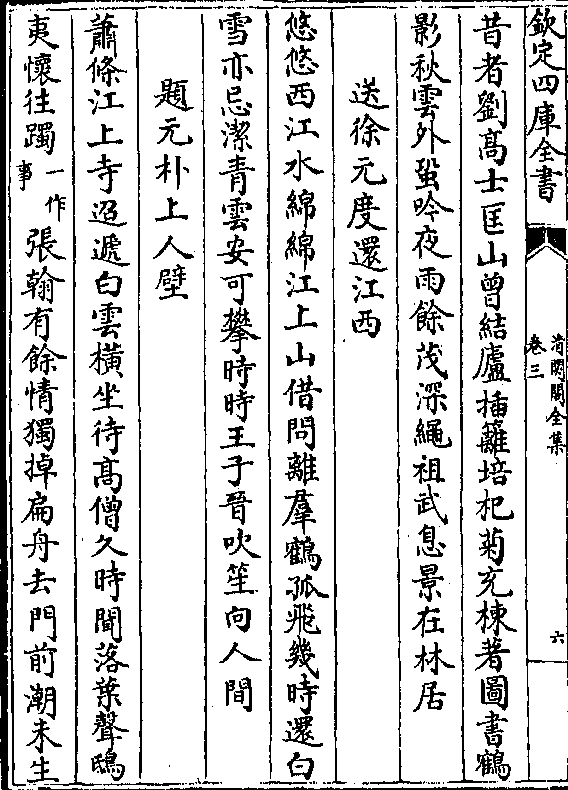 欽定四庫全書
清閟閣全集
卷三
六
昔者劉髙士匡山曾結廬揷籬培杞菊充棟著圖書鶴
影秋雲外蛩吟夜雨餘茂深繩祖武息景在林居
送徐元度還江西
悠悠西江水綿綿江上山借問離羣鶴孤飛幾時還白
雪亦忌潔青雲安可攀時時王子晉吹笙向人間
題元朴上人壁
蕭條江上寺迢遞白雲橫坐待髙僧久時聞落葉聲鴟
夷懷往躅一作事張翰有餘情獨掉扁舟去門前潮未生